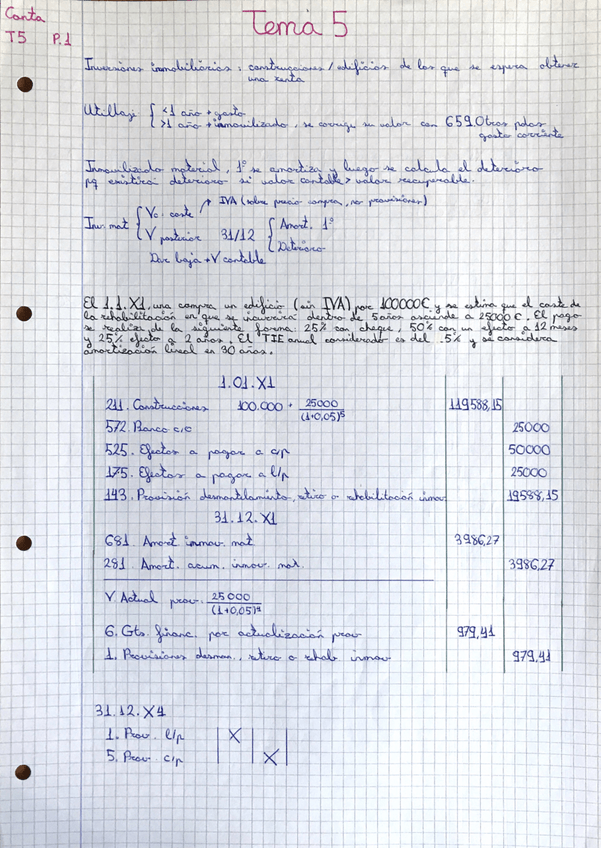 Conta
T5 P.1
Tema 5
Inversiones inmobiliarias : construcciones / edificios de los que se espera obtener
una renta
Utillaje { <1 año → gasto
>1 año → inmovilizado, se corrige su valor con 659. Otras pdas
gasto corriente
Inmovilizado material, 1º se amortiza y luego se calcula el deterioro
pq existirá deterioro si valor contable > valor recuperable.
Inv. mat { Vo. coste ↗ IVA (sobre precio compra, no provisiones)
V posterior 31/12 { Amort. 1º
Deterioro
Dar baja → V contable
El 1.1.X1, una compra un edificio (sin IVA) por 100000€ y se estima que el coste de
la rehabilitación en que se incurrirá dentro de 5 años asciende a 25000€. El pago
se realiza de la siguiente forma: 25% con cheque, 50% con un efecto a 12 meses
y 25% efecto a 2 años. El TIE anual considerado es del 5% y se considera
amortización lineal en 30 años.
1.01.X1
211. Construcciones 100.000 + 25000/(1+0,05)⁵ 119588,15
572. Banco c/c 25000
525. Efectos a pagar a c/p 50000
175. Efectos a pagar a l/p 25000
143. Provisión desmantelamiento, retiro o rehabilitación inmov 19588,15
31.12.X1
681. Amort inmov. mat 3986,27
281. Amort. acum. inmov. mat. 3986,27
V. Actual prov. 25000/(1+0,05)⁴
6. Gts. financ. por actualización prov 979,41
1. Provisiones desman., retiro o rehab inmov 979,41
31.12.X4
1. Prov. l/p X
5. Prov. c/p X